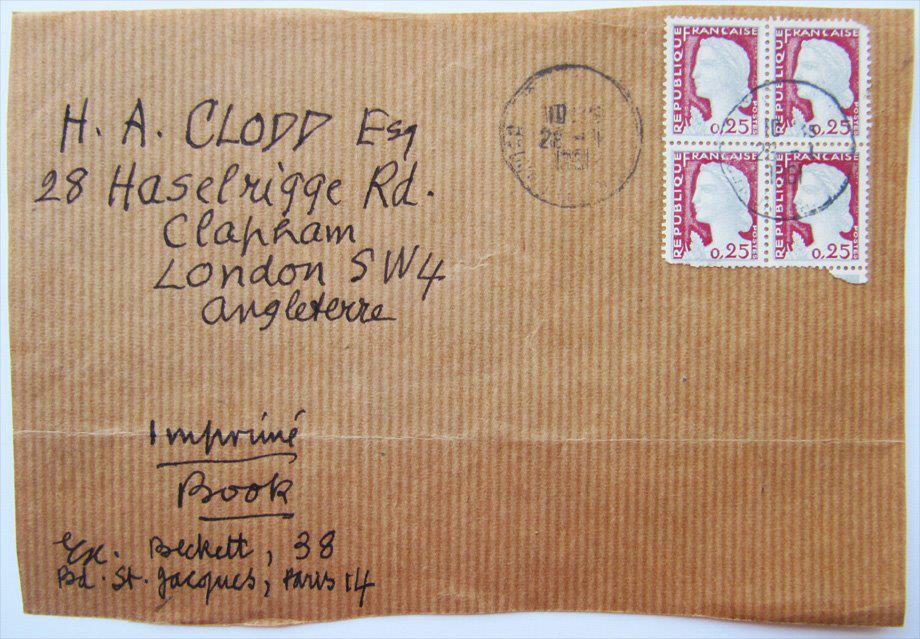 H. A. CLODD Esq
28 Haselrigge Rd.
Clapham
London SW4
Angleterre
Imprimé
Book
Ex. Beckett, 38
Bd. St. Jacques, Paris 14
REPUBLIQUE FRANCAISE
POSTES
0,25
REPUBLIQUE FRANCAISE
POSTES
0,25
REPUBLIQUE FRANCAISE
POSTES
0,25
REPUBLIQUE FRANCAISE
POSTES
0,25